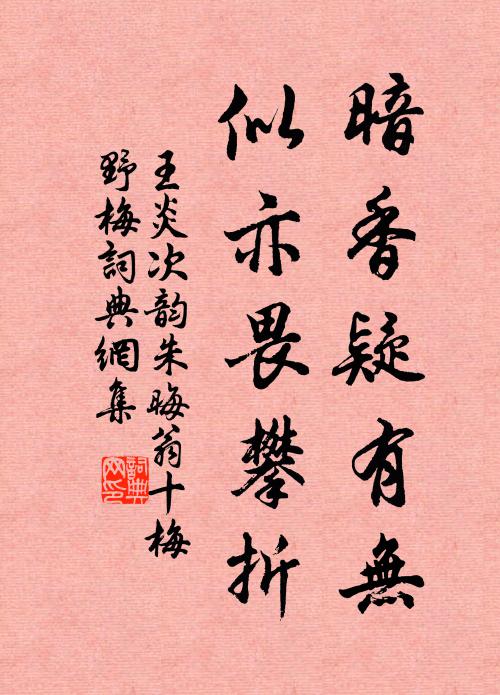 暗香疑有無
似亦畏攀折
王炎次韵朱晦翁十梅
野梅詞典網集
詞典
网印